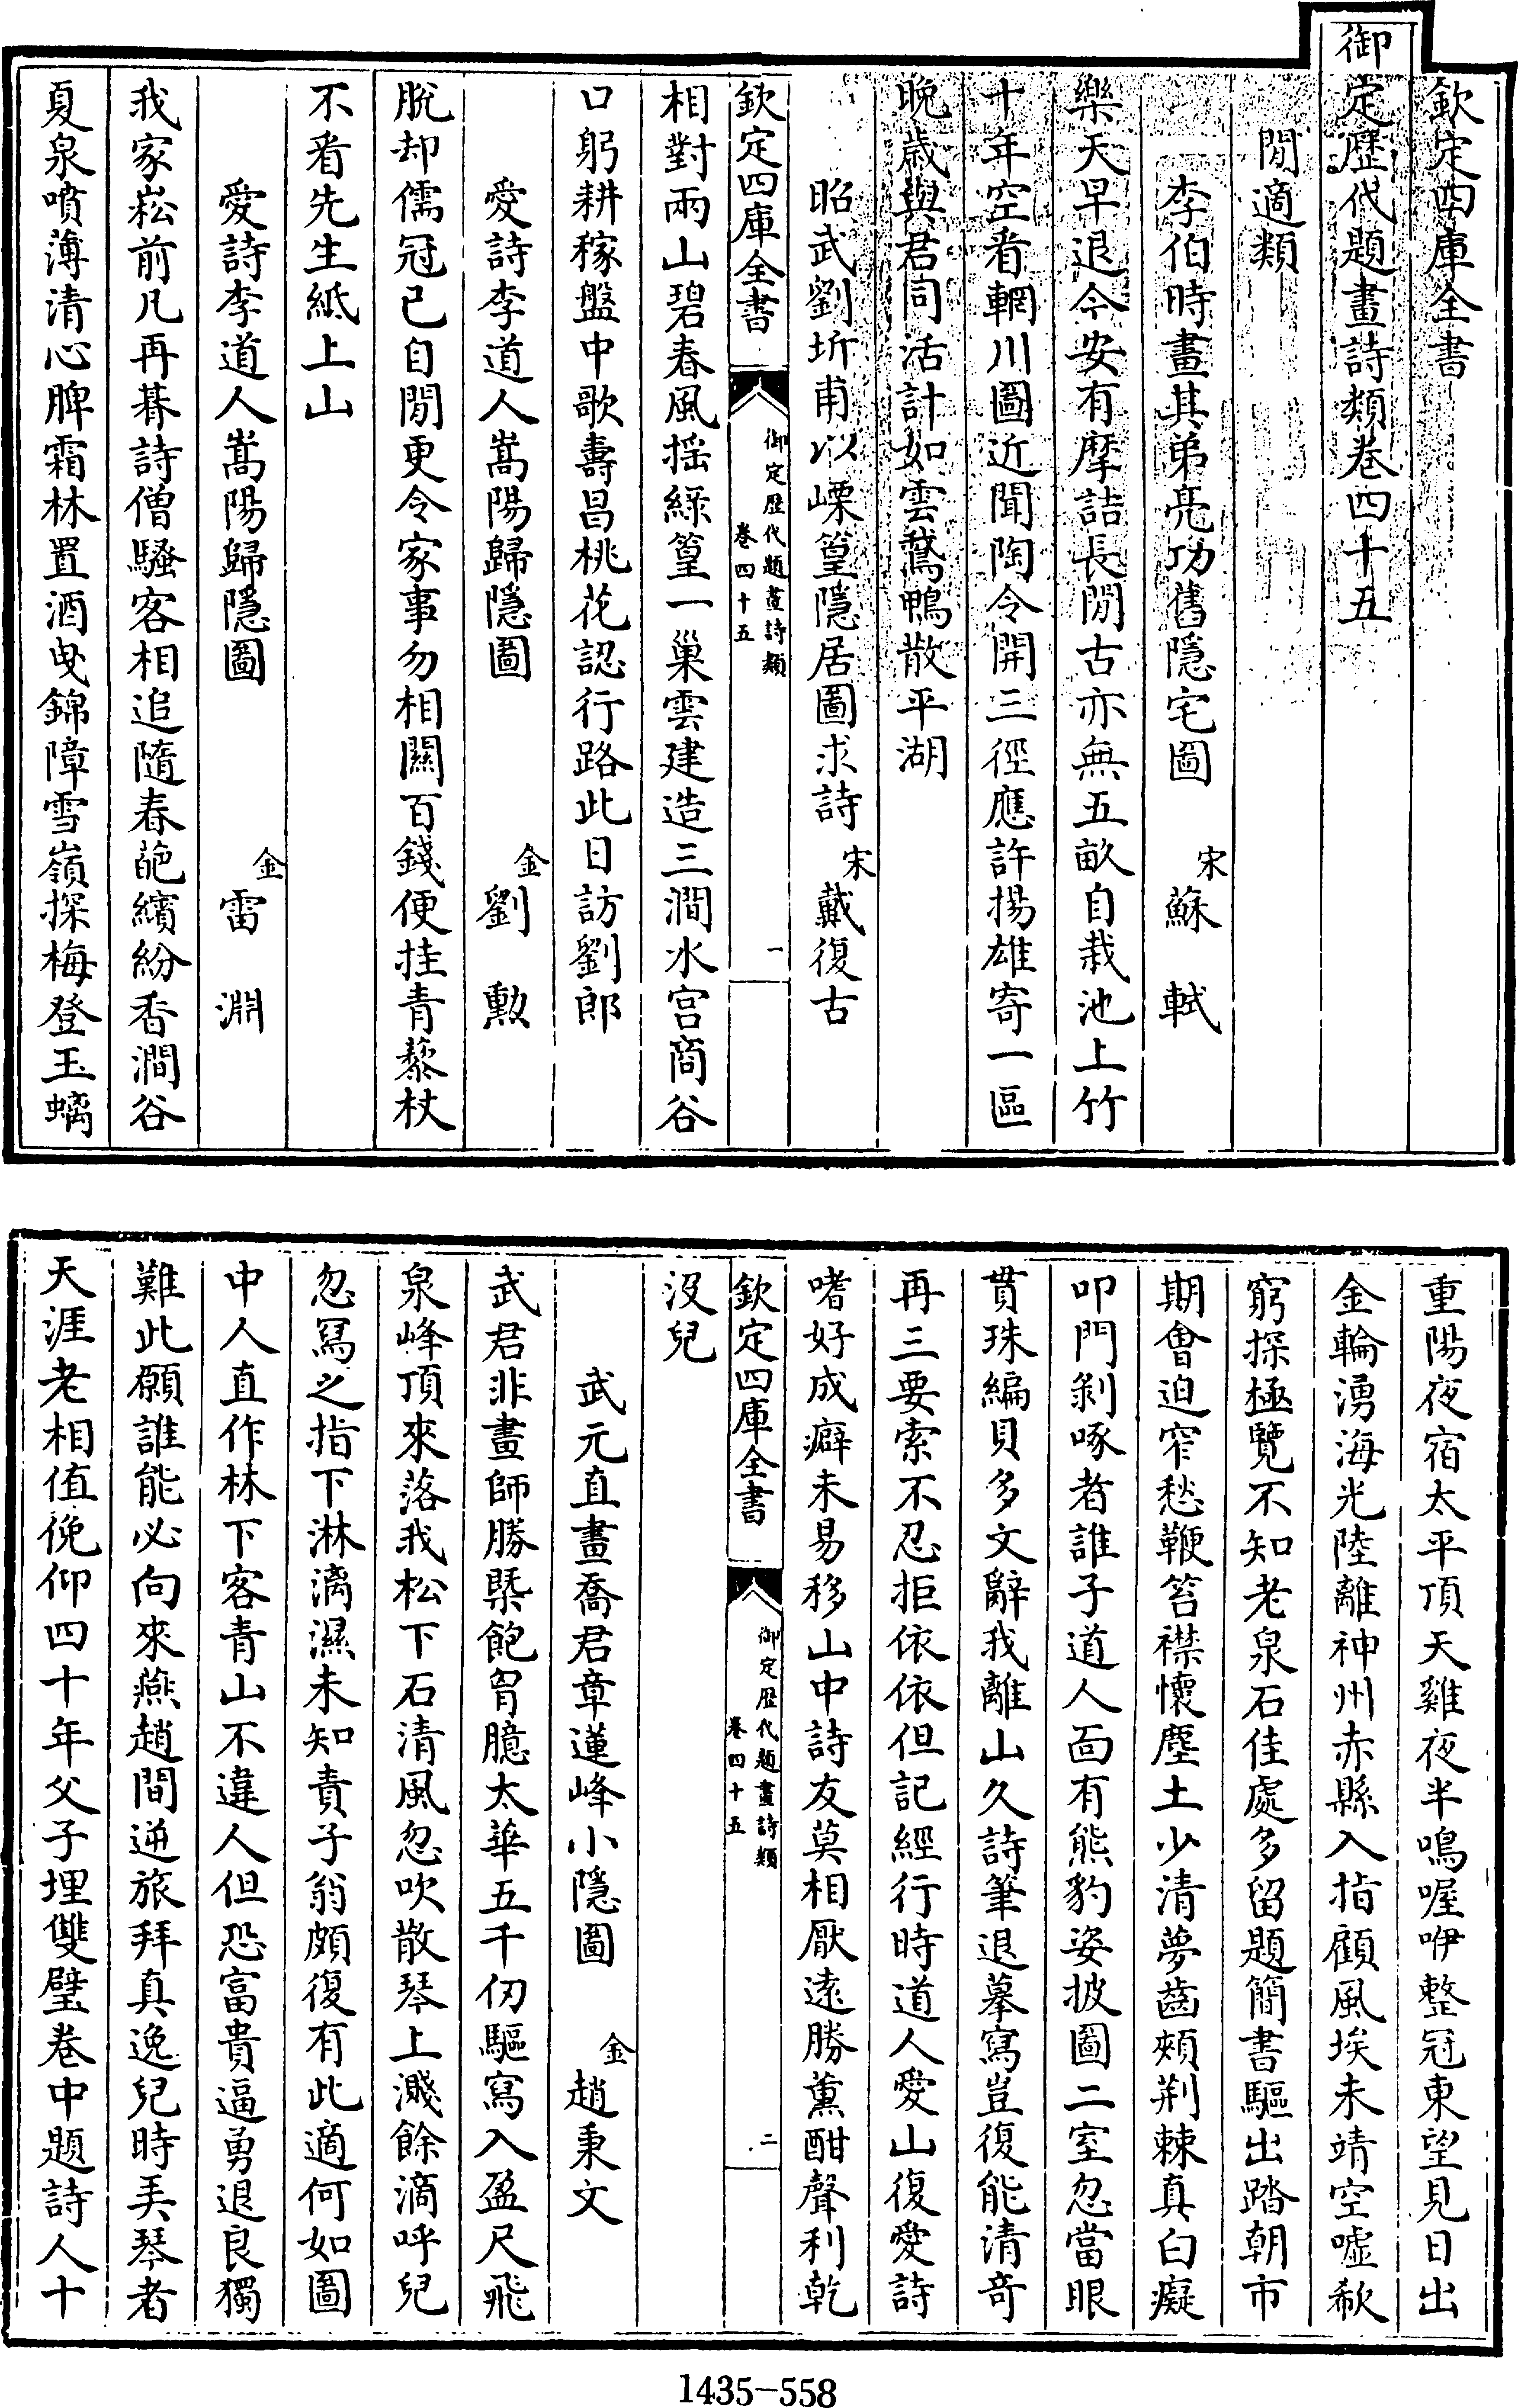 欽定四庫全書
御定歷代題畫詩類卷四十五
閒適類
李伯時畫其弟亮功舊隱宅圖　宋蘇　軾
樂天早退今安有摩詰長閒古亦無五畝自栽池上竹
十年空看輞川圖近聞陶令開三徑應許揚雄寄一區
晚歲與君同活計如雲鵞鴨散平湖
昭武劉圻甫以㠏篁隱居圖求詩　宋戴復古
欽定四庫全書
御定歷代題畫詩類
卷四十五
一
相對兩山碧春風揺綠篁一巢雲建造三澗水宫商谷
口躬耕稼盤中歌壽昌桃花認行路此日訪劉郎
愛詩李道人嵩陽歸隱圖　金劉　勲
脫却儒冠已自閒更令家事勿相關百錢便挂青藜杖
不看先生紙上山
愛詩李道人嵩陽歸隱圖　金雷　淵
我家崧前凡再朞詩僧騷客相追隨春葩繽紛香澗谷
夏泉噴薄清心脾霜林置酒曳錦障雪嶺探梅登玉螭
重陽夜宿太平頂天雞夜半鳴喔咿整冠東望見日出
金輪湧海光陸離神州赤縣入指顧風埃未靖空噓欷
窮探極覽不知老泉石佳處多留題簡書驅出踏朝市
期會迫窄愁鞭笞襟懷塵土少清夢齒頰荆棘真白癡
叩門剝啄者誰子道人面有熊豹姿披圖二室忽當眼
貫珠編貝多文辭我離山久詩筆退摹寫豈復能清奇
再三要索不忍拒依依但記經行時道人愛山復愛詩
嗜好成癖未易移山中詩友莫相厭遠勝薰酣聲利乾
欽定四庫全書
御定歷代題畫詩類
卷四十五
二
沒兒
武元直畫喬君章蓮峰小隱圖　金趙秉文
武君非畫師勝槩飽胷臆太華五千仞驅寫入盈尺飛
泉峰頂來落我松下石清風忽吹散琴上濺餘滴呼兒
忽冩之指下淋漓濕未知責子翁頗復有此適何如圖
中人直作林下客青山不違人但恐富貴逼勇退良獨
難此願誰能必向來燕趙間逆旅拜真逸兒時弄琴者
天涯老相值俛仰四十年父子埋雙璧卷中題詩人十
1435-558